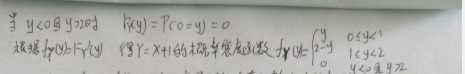 当 y<0或 y≥2时 F_Y(y)=P(0=y)=0
根据 f_Y(y)=F_Y'(y) 得Y=X+1的概率密度函数 f_Y(y)={ y 0≤y<1
2-y 1≤y<2
0 y<0或 y≥2